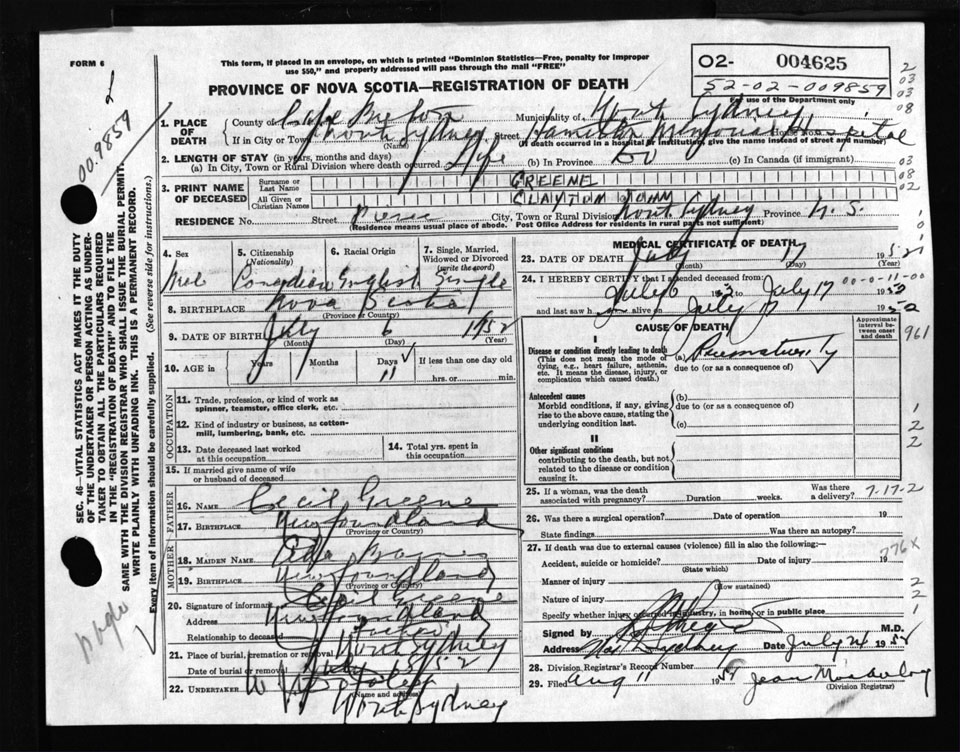 FORM 6
This form, if placed in an envelope, on which is printed "Dominion Statistics—Free, penalty for improper
use $50," and properly addressed will pass through the mail "FREE"
O2- 004625
52-02-009859
For use of the Department only
PROVINCE OF NOVA SCOTIA—REGISTRATION OF DEATH
009859
1. PLACE OF DEATH
County of Cape Breton Municipality of North Sydney
If in City or Town North Sydney Street Hamilton Memorial Hospital
(Name) (If death occurred in a hospital or institution, give the name instead of street and number)
2. LENGTH OF STAY (in years, months and days)
(a) In City, Town or Rural Division where death occurred Life (b) In Province (c) In Canada (if immigrant)
3. PRINT NAME OF DECEASED
Surname or Last Name GREENE
All Given or Christian Names CLAYTON JOHN
RESIDENCE No. Street Pierce City, Town or Rural Division North Sydney Province N. S.
(Residence means usual place of abode. Post Office Address for residents in rural parts not sufficient)
4. Sex 5. Citizenship (Nationality) 6. Racial Origin 7. Single, Married, Widowed or Divorced (write the word)
Male Canadian English Single
8. BIRTHPLACE Nova Scotia
(Province or Country)
9. DATE OF BIRTH July 6 1952
(Month) (Day) (Year)
10. AGE in Years Months Days 11 If less than one day old
hrs. or min.
OCCUPATION
11. Trade, profession, or kind of work as spinner, teamster, office clerk, etc.
12. Kind of industry or business, as cotton-mill, lumbering, bank, etc.
13. Date deceased last worked at this occupation 14. Total yrs. spent in this occupation
15. If married give name of wife or husband of deceased
FATHER
16. NAME Cecil Greene
17. BIRTHPLACE Newfoundland
(Province or Country)
MOTHER
18. MAIDEN NAME
19. BIRTHPLACE Newfoundland
(Province or Country)
20. Signature of informant Cecil Greene
Address
Relationship to deceased Father
21. Place of burial, cremation or removal North Sydney
Date of burial or removal 1952
22. UNDERTAKER
(Name and address)
North Sydney
MEDICAL CERTIFICATE OF DEATH
23. DATE OF DEATH July 17 1952
(Month) (Day) (Year)
24. I HEREBY CERTIFY that I attended deceased from:
July 6 1952 to July 17 1952
and last saw h alive on July 17 1952
CAUSE OF DEATH
Approximate interval between onset and death
I
Disease or condition directly leading to death (a) Prematurity
(This does not mean the mode of dying, e.g., heart failure, asthenia, etc. It means the disease, injury, or complication which caused death.)
due to (or as a consequence of)
Antecedent causes (b)
Morbid conditions, if any, giving rise to the above cause, stating the underlying condition last.
due to (or as a consequence of)
(c)
II
Other significant conditions
contributing to the death, but not related to the disease or condition causing it.
25. If a woman, was the death associated with pregnancy? Duration weeks. Was there a delivery? 7-17-2
26. Was there a surgical operation? Date of operation 19
State findings Was there an autopsy?
27. If death was due to external causes (violence) fill in also the following:—
776X
Accident, suicide or homicide? Date of injury 19
(State which)
Manner of injury
(How sustained)
Nature of injury
Specify whether injury occurred in industry, in home, or in public place
Signed by M.D.
Address No. Sydney Date July 24 1952
28. Division Registrar's Record Number
29. Filed Aug 11 19 Jean
(Division Registrar)
SEC. 46—VITAL STATISTICS ACT MAKES IT THE DUTY
OF THE UNDERTAKER OR PERSON ACTING AS UNDERTAKER
TO OBTAIN ALL THE PARTICULARS REQUIRED
IN THE "REGISTRATION OF DEATH" AND TO FILE THE
SAME WITH THE DIVISION REGISTRAR WHO SHALL ISSUE THE BURIAL PERMIT.
WRITE PLAINLY WITH UNFADING INK. THIS IS A PERMANENT RECORD.
Every item of information should be carefully supplied. (See reverse side for instructions.)